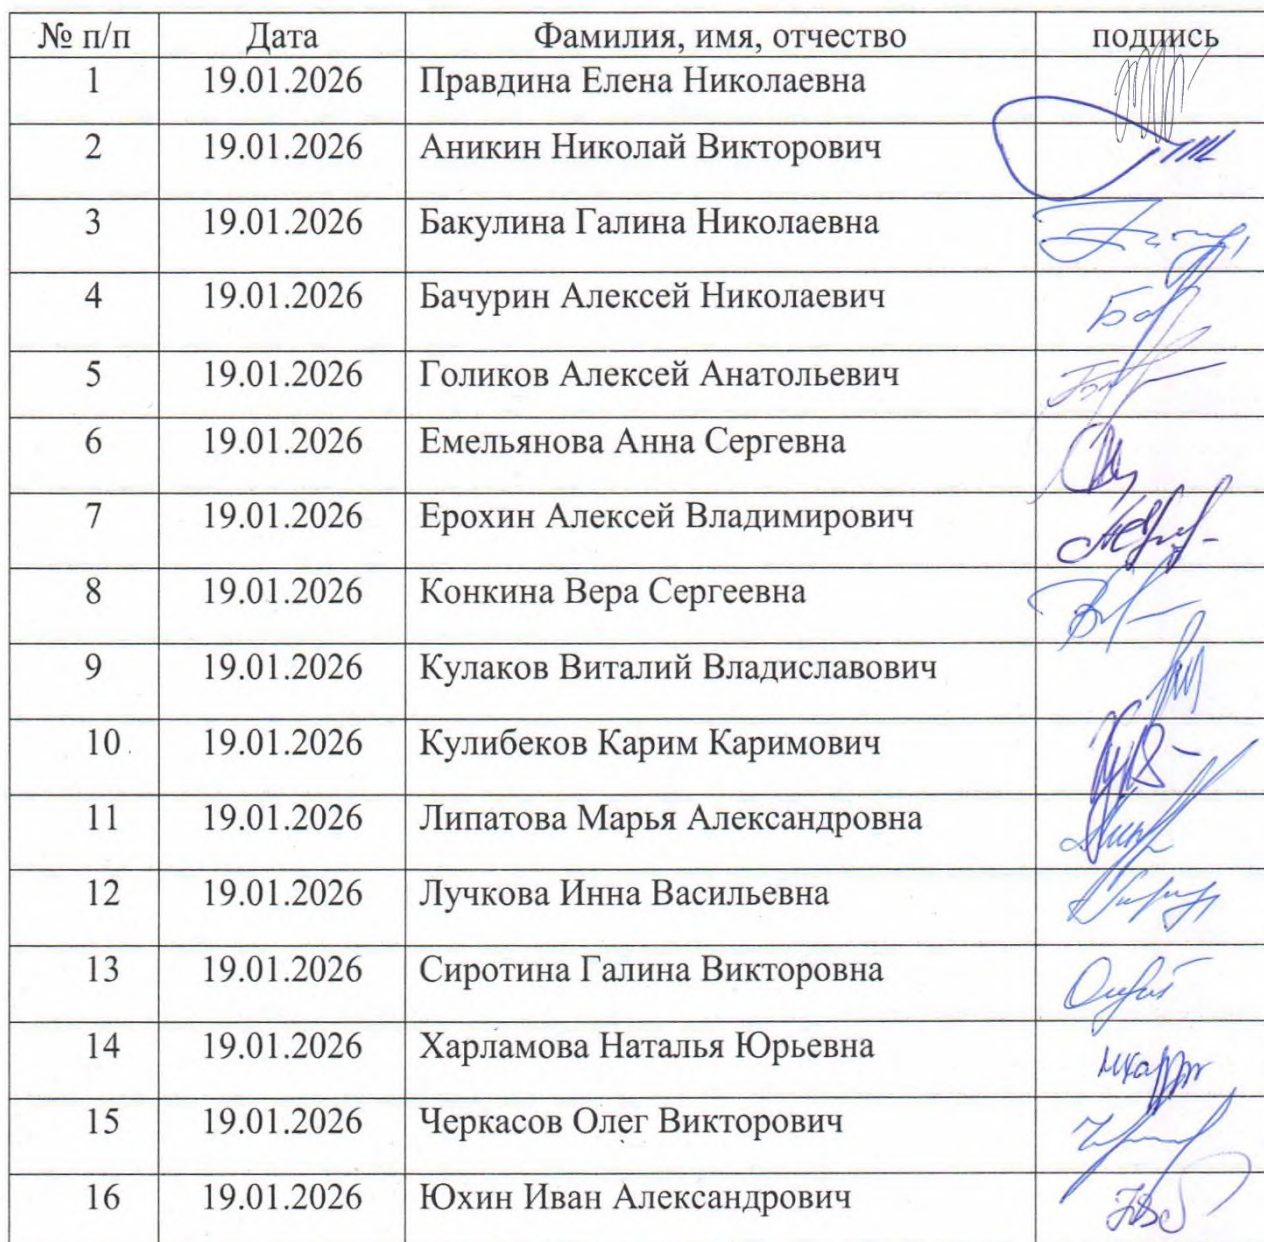 № п/п Дата Фамилия, имя, отчество подпись
1 19.01.2026 Правдина Елена Николаевна
2 19.01.2026 Аникин Николай Викторович
3 19.01.2026 Бакулина Галина Николаевна
4 19.01.2026 Бачурин Алексей Николаевич
5 19.01.2026 Голиков Алексей Анатольевич
6 19.01.2026 Емельянова Анна Сергевна
7 19.01.2026 Ерохин Алексей Владимирович
8 19.01.2026 Конкина Вера Сергеевна
9 19.01.2026 Кулаков Виталий Владиславович
10 19.01.2026 Кулибеков Карим Каримович
11 19.01.2026 Липатова Марья Александровна
12 19.01.2026 Лучкова Инна Васильевна
13 19.01.2026 Сиротина Галина Викторовна
14 19.01.2026 Харламова Наталья Юрьевна
15 19.01.2026 Черкасов Олег Викторович
16 19.01.2026 Юхин Иван Александрович